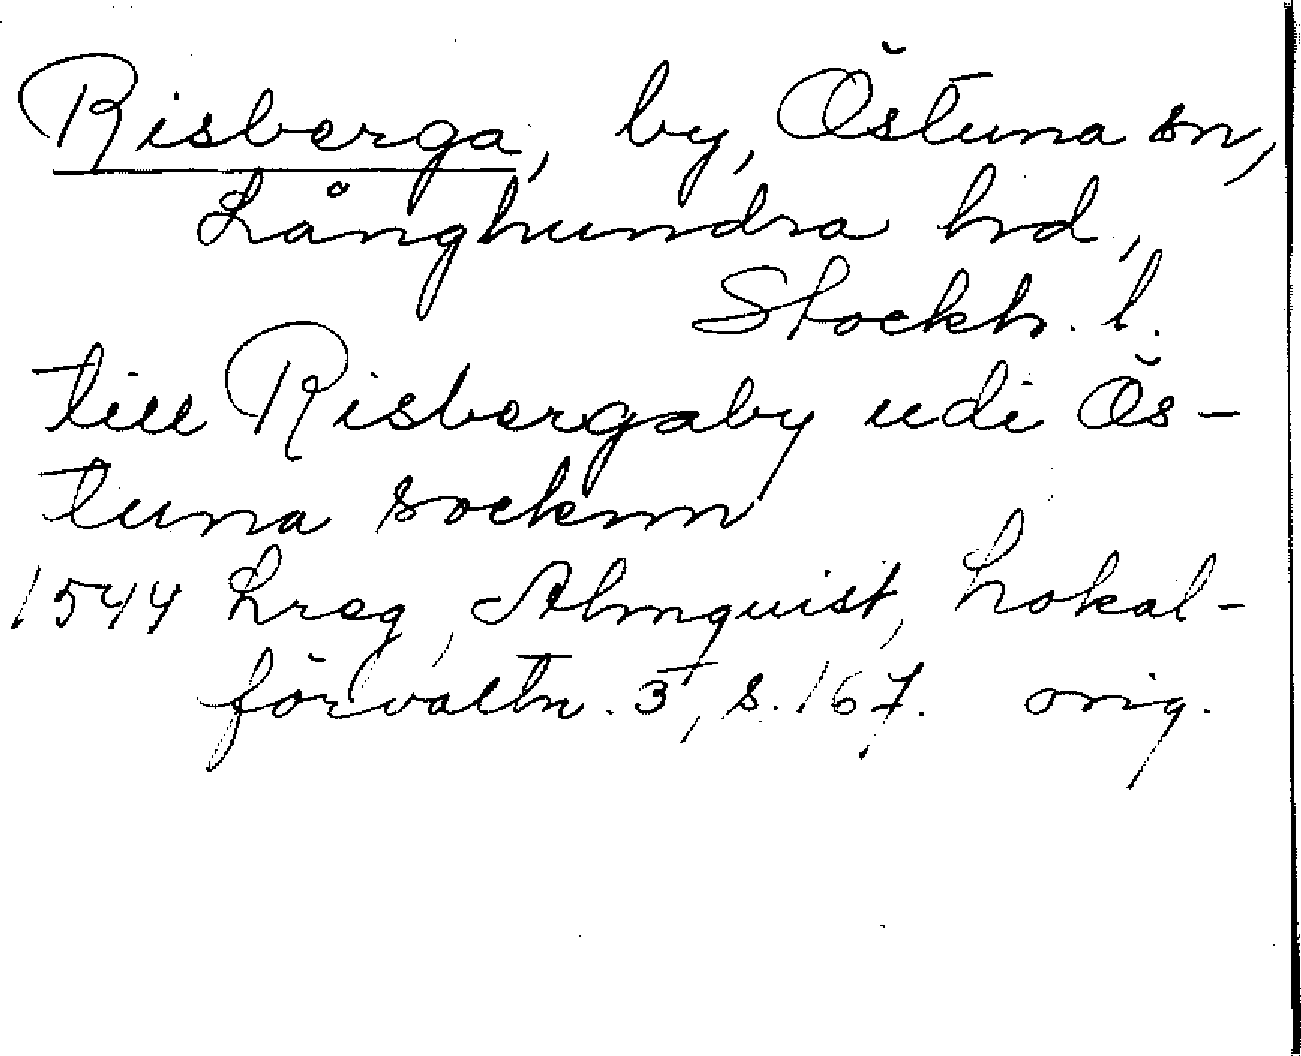 Risberga, by, Östuna sn,
Långhundra hd,
Stockh. l.
till Risbergaby udi Ös-
tuna socknn
1544 Lreg, Almquist, Lokal-
förvaltn. 3, s. 167. orig.